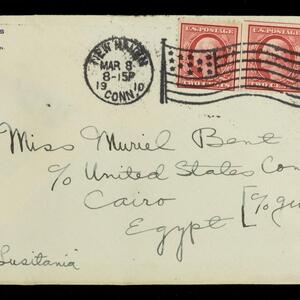 NEW HAVEN
MAR 8
8-15P
1910
CONN.
U.S. POSTAGE
TWO CENTS
U.S. POSTAGE
TWO CE
Miss Muriel Bent
c/o United States Con
Cairo
Egypt [c/o
Lusitania"